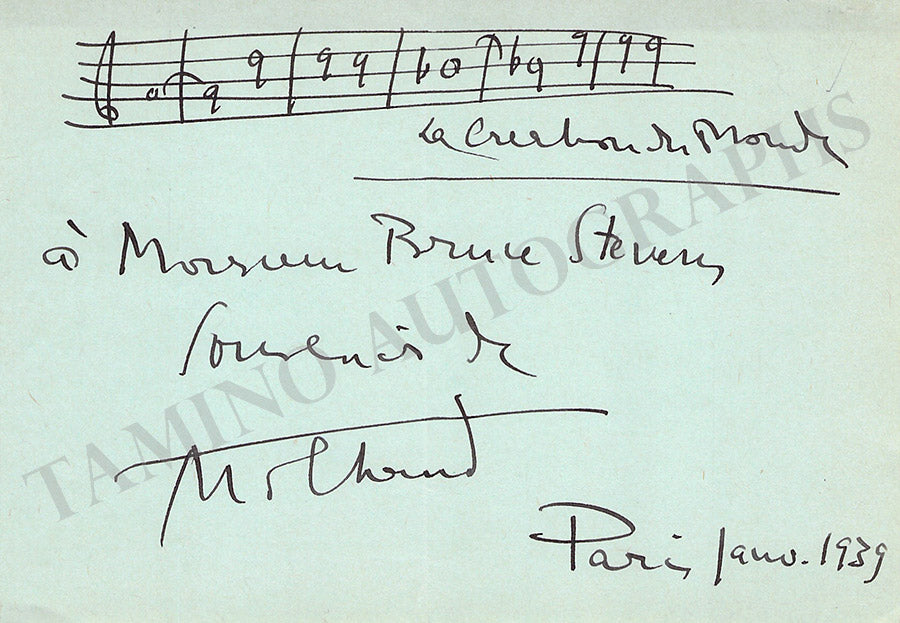 La Création du Monde
à Monsieur Bruce Stevens
Souvenir de
Milhaud
Paris Janv. 1939
TAMINO AUTOGRAPHS